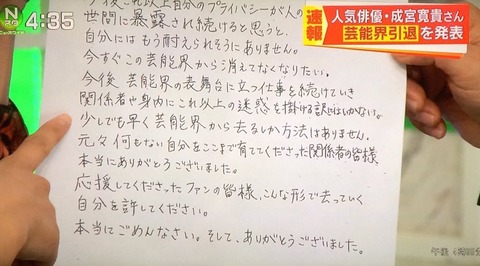 N
4:35
速報
人気俳優・成宮寛貴さん
芸能界引退を発表
今後これ以上自分のプライバシーが人の
世間に暴露され続けると思うと、
自分にはもう耐えられそうにありません。
今すぐこの芸能界から消えてなくなりたい。
今後芸能界の表舞台に立つ仕事を続けていき
関係者や身内にこれ以上の迷惑を掛ける訳にはいかない。
少しでも早く芸能界から去るしか方法はありません。
元々何もない自分をここまで育ててくださった関係者の皆様、
本当にありがとうございました。
応援してくださったファンの皆様、こんな形で去っていく
自分を許してください。
本当にごめんなさい。そして、ありがとうございました。